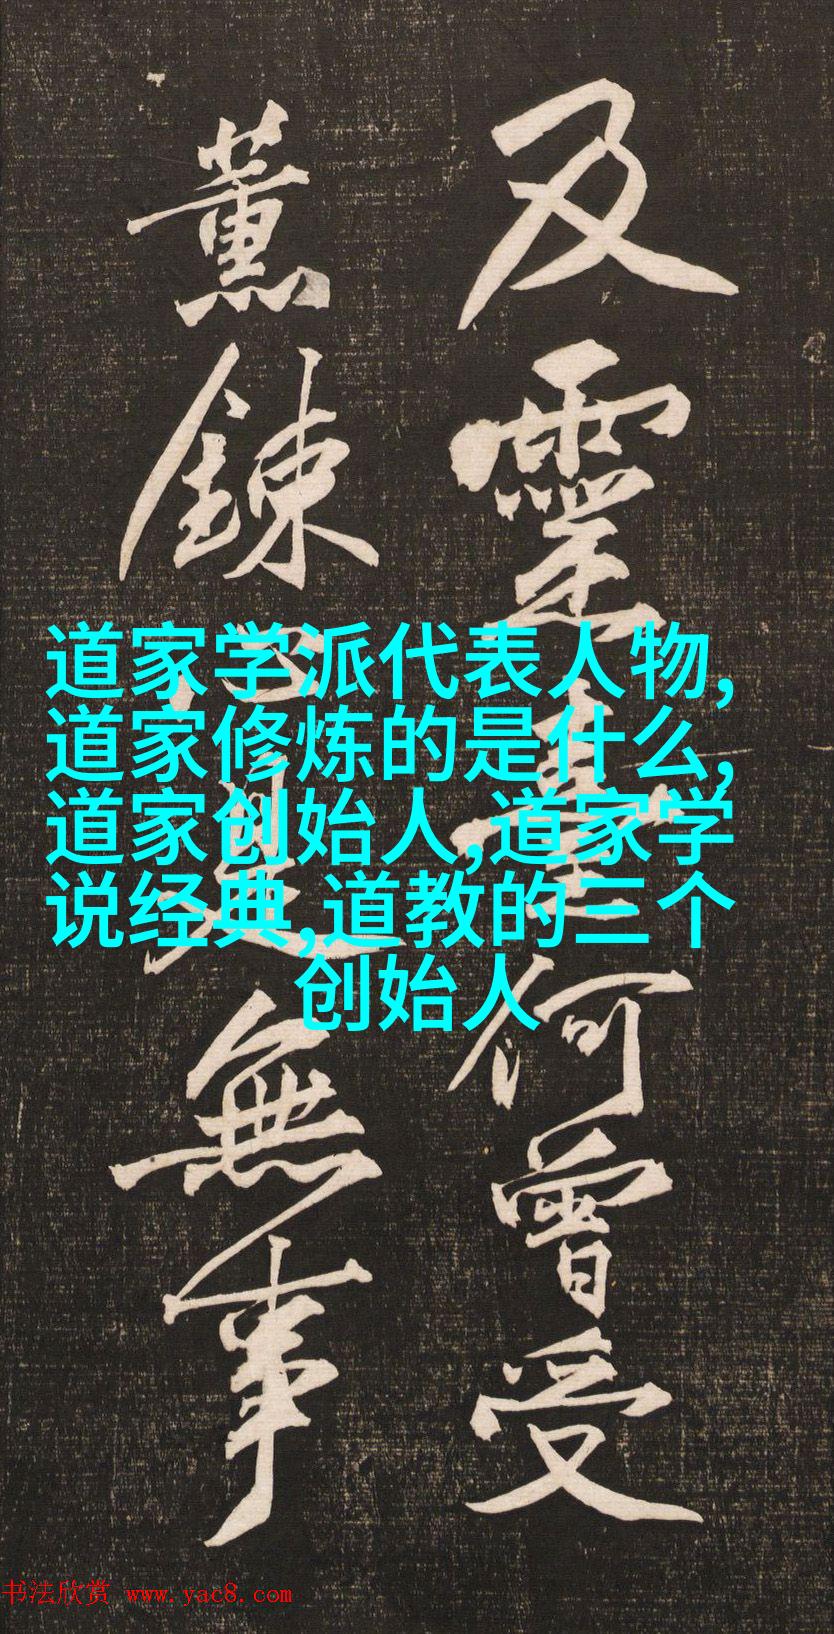 及靈臺何曾受
薰鍊無事
道家学派代表人物,
道家修炼的是什么,
道家创始人,道家学
说经典,道教的三个
创始人
书法欣赏 www.yac8.com